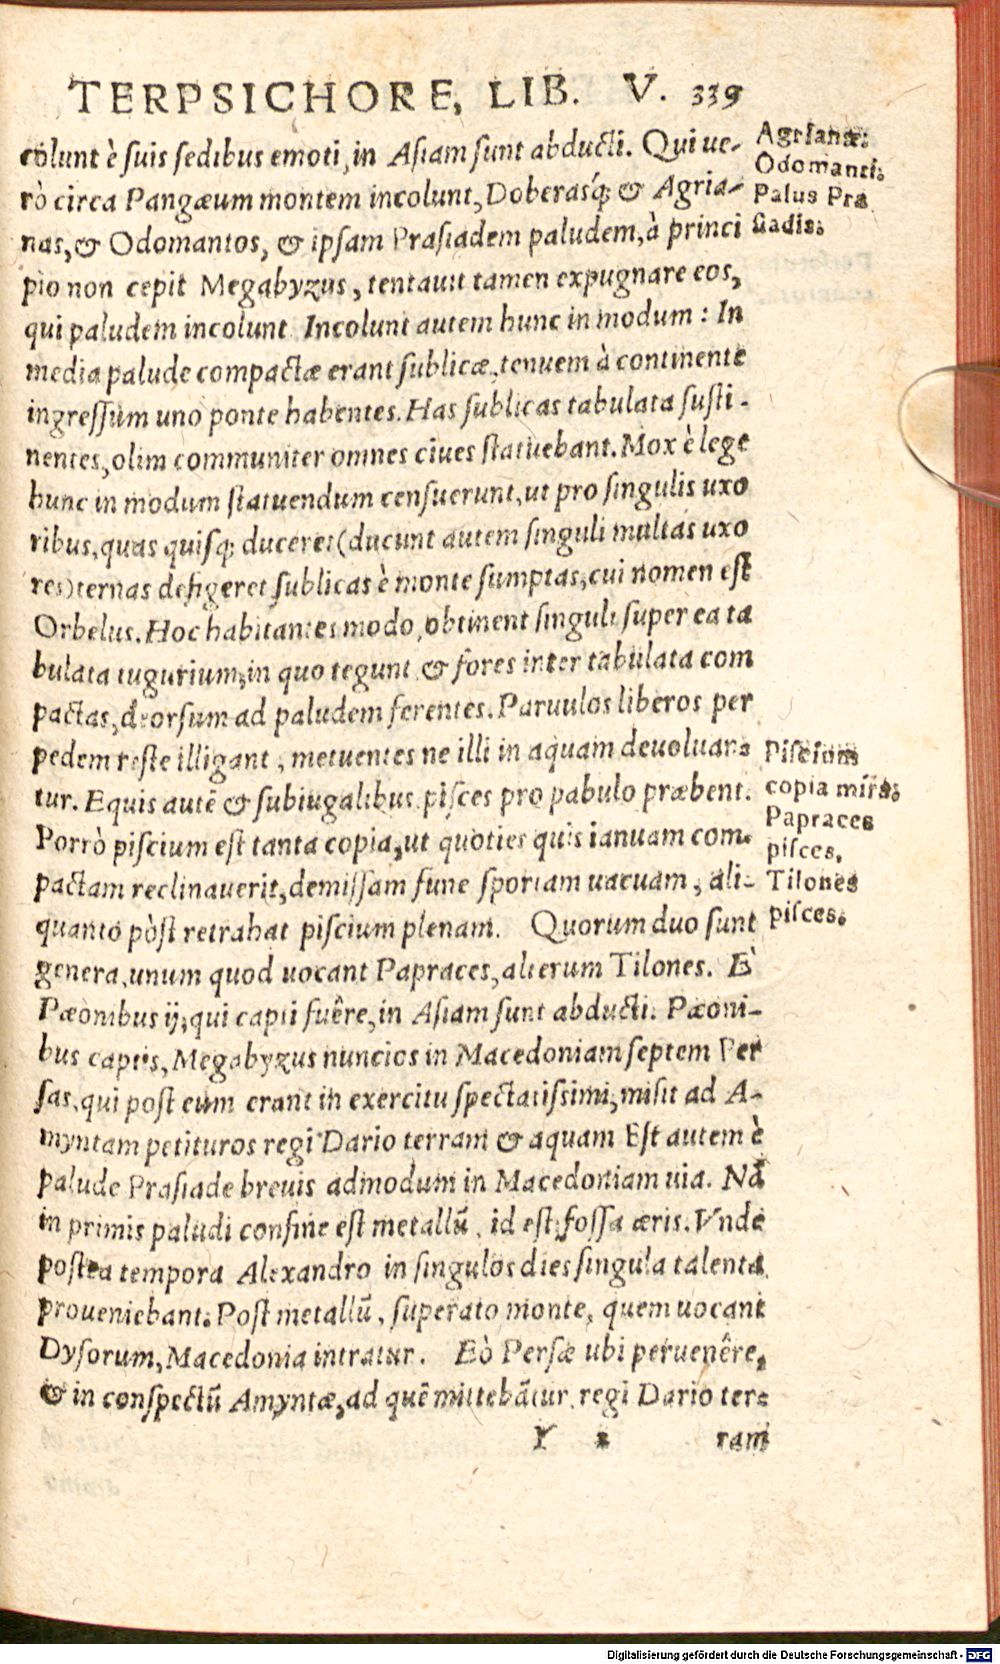 TERPSICHORE, LIB. V. 339
colunt è suis sedibus emoti, in Asiam sunt abducti. Qui ue-
rò circa Pangæum montem incolunt, Doberasq́; & Agria-
nas, & Odomantos, & ipsam Prasiadem paludem, à princi
pio non cepit Megabyzus, tentauit tamen expugnare eos,
qui paludem incolunt Incolunt autem hunc in modum: In
media palude compactæ erant sublicæ, tenuem à continente
ingressum uno ponte habentes. Has sublicas tabulata susti-
nentes, olim communiter omnes ciues statuebant. Mox è lege
hunc in modum statuendum censuerunt, ut pro singulis uxo
ribus, quas quisq; duceret (ducunt autem singuli multas uxo
res) ternas defigeret sublicas è monte sumptas, cui nomen est
Orbelus. Hoc habitantes modo, obtinent singuli super ea ta
bulata tugurium, in quo tegunt & fores inter tabulata com
pactas, deorsum ad paludem ferentes. Paruulos liberos per
pedem reste illigant, metuentes ne illi in aquam deuoluan-
tur. Equis autē & subiugalibus pisces pro pabulo præbent.
Porrò piscium est tanta copia, ut quoties quis ianuam com-
pactam reclinauerit, demissam fune sportam uacuam, ali-
quanto pòst retrahat piscium plenam. Quorum duo sunt
genera, unum quod uocant Papraces, alterum Tilones. È
Pæonibus ij, qui capti fuêre, in Asiam sunt abducti. Pæoni-
bus captis, Megabyzus nuncios in Macedoniam septem Per
sas, qui post eum erant in exercitu spectatissimi, misit ad A-
myntam petituros regi Dario terram & aquam Est autem è
palude Prasiade breuis admodum in Macedoniam uia. Nā
in primis paludi confine est metallū, id est, fossa æris. Vnde
postea tempora Alexandro in singulos dies singula talenta
proueniebant. Post metallū, superato monte, quem uocant
Dysorum, Macedonia intratur. Eò Persæ ubi peruenêre,
& in conspectū Amyntæ, ad quē mittebātur, regi Dario ter-
Y 2 ram
Agrianæ.
Odomanti.
Palus Pra
siadis.
Piscium
copia mira.
Papraces
pisces.
Tilones
pisces.
Digitalisierung gefördert durch die Deutsche Forschungsgemeinschaft - DFG